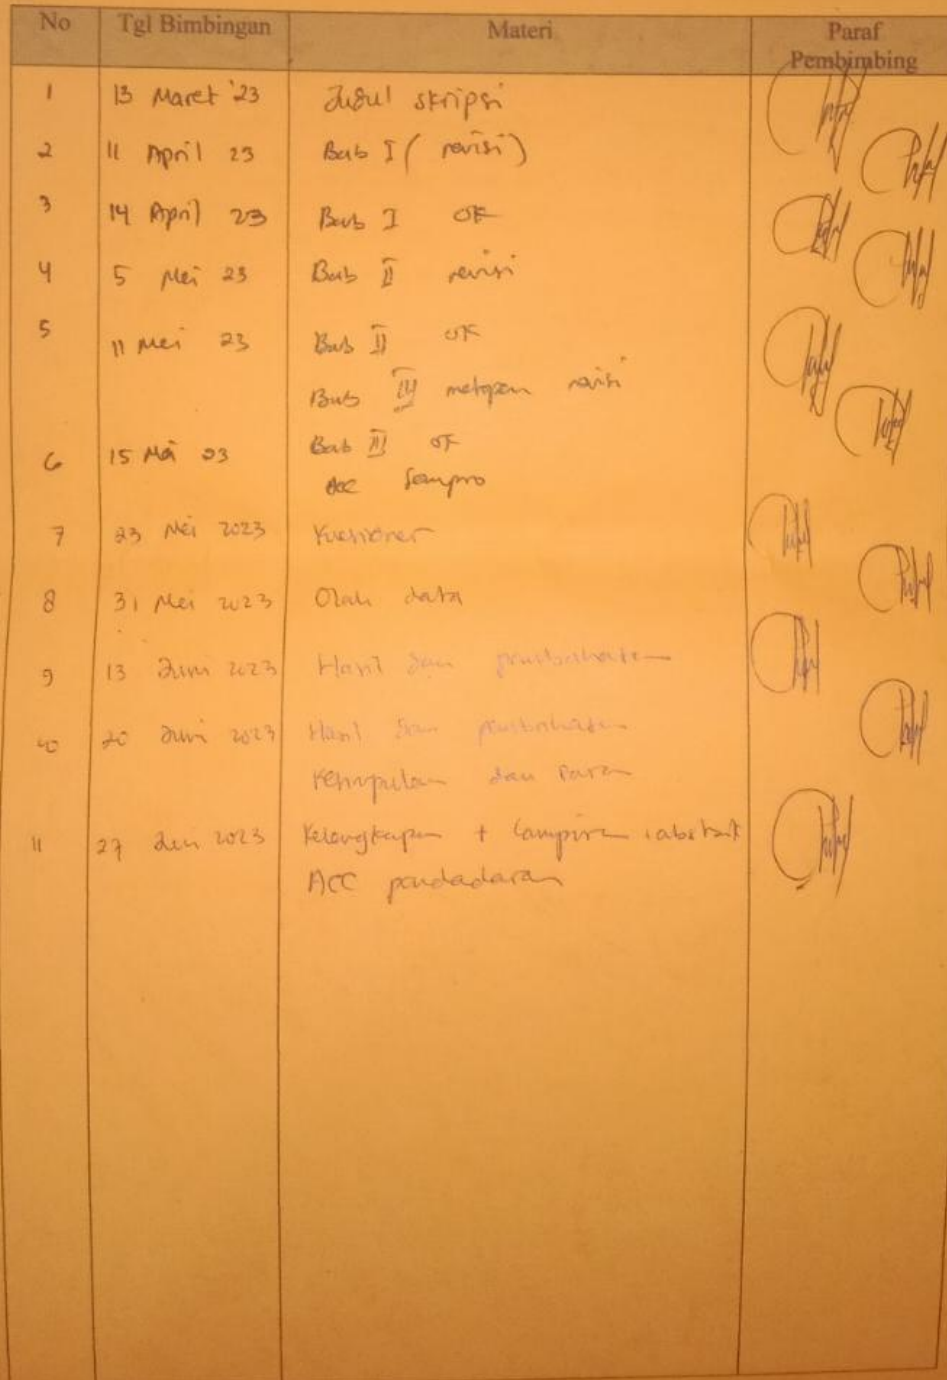 No Tgl Bimbingan Materi Paraf
Pembimbing
1 13 Maret '23 Judul skripsi
2 11 April 23 Bab I ( revisi )
3 14 April 23 Bab I OK
4 5 Mei 23 Bab II revisi
5 11 Mei 23 Bab II OK
Bab III metopen revisi
6 15 Mei 23 Bab III OK
acc Sempro
7 23 Mei 2023 Kuesioner
8 31 Mei 2023 Olah data
9 13 Juni 2023 Hasil dan pembahasan
10 20 Juni 2023 Hasil dan pembahasan
Kesimpulan dan saran
11 27 Jun 2023 Kelengkapan + lampiran , abstrak
ACC pendadaran